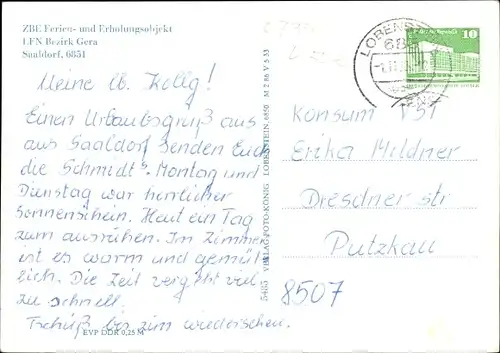 ZBE Ferien- und Erholungsobjekt
LFN Bezirk Gera
Saaldorf, 6851
Meine lb. Kollg!
Einen Urlaubsgruß aus
aus Saaldorf senden Euch
die Schmidt's. Montag und
Dienstag war herrlicher
Sonnenschein. Heut ein Tag
zum ausruhen. Im Zimmer
ist es warm und gemüt
lich. Die Zeit vergeht viel
zu schnell.
Tschüß bis zum wiedersehen.
EVP DDR 0,25 M
5485 VERLAG FOTO-KÖNIG LOBENSTEIN, 6850 M 2 86 V 5 33
LOBENST
685
10
Konsum V51
Erika Mildner
Dresdner str
Putzkau
8507